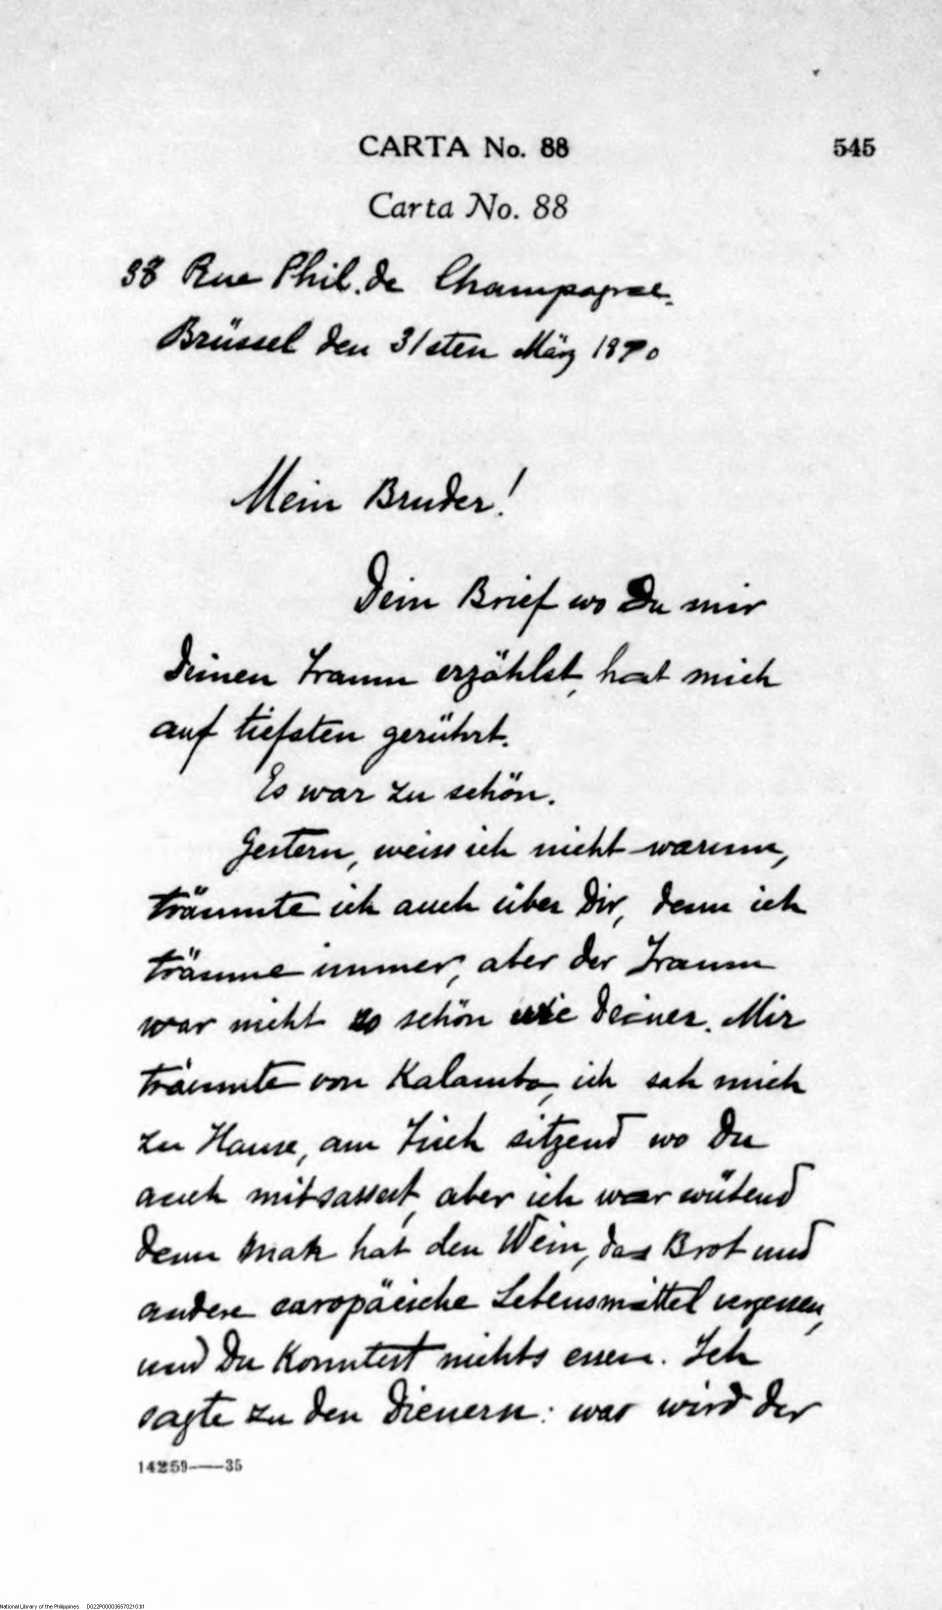 CARTA No. 88 545
Carta No. 88
38 Rue Phil. de Champagne.
Brüssel den 31sten März 1890
Mein Bruder!
Dein Brief wo Du mir
Deinen Traum erzählst, hat mich
auf tiefsten gerührt.
Es war zu schön.
Gestern, weiss ich nicht warum,
träumte ich auch über Dir, denn ich
träume immer, aber der Traum
war nicht so schön wie Deiner. Mir
träumte von Kalamba, ich sah mich
zu Hause, am Tisch sitzend wo Du
auch mitsassest, aber ich war wütend
denn man hat den Wein, das Brot und
andere europäeische Lebensmittel vergessen,
und Du Konntest nichts essen. Ich
sagte zu den Dienern: was wird der
14259——35
National Library of the Philippines